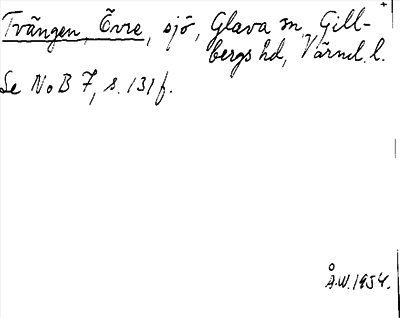 Tvängen, Övre, sjö, Glava sn, Gill-
bergs hd, Värml. l.
Se NoB 7, s. 131 f.
Å.W. 1954.